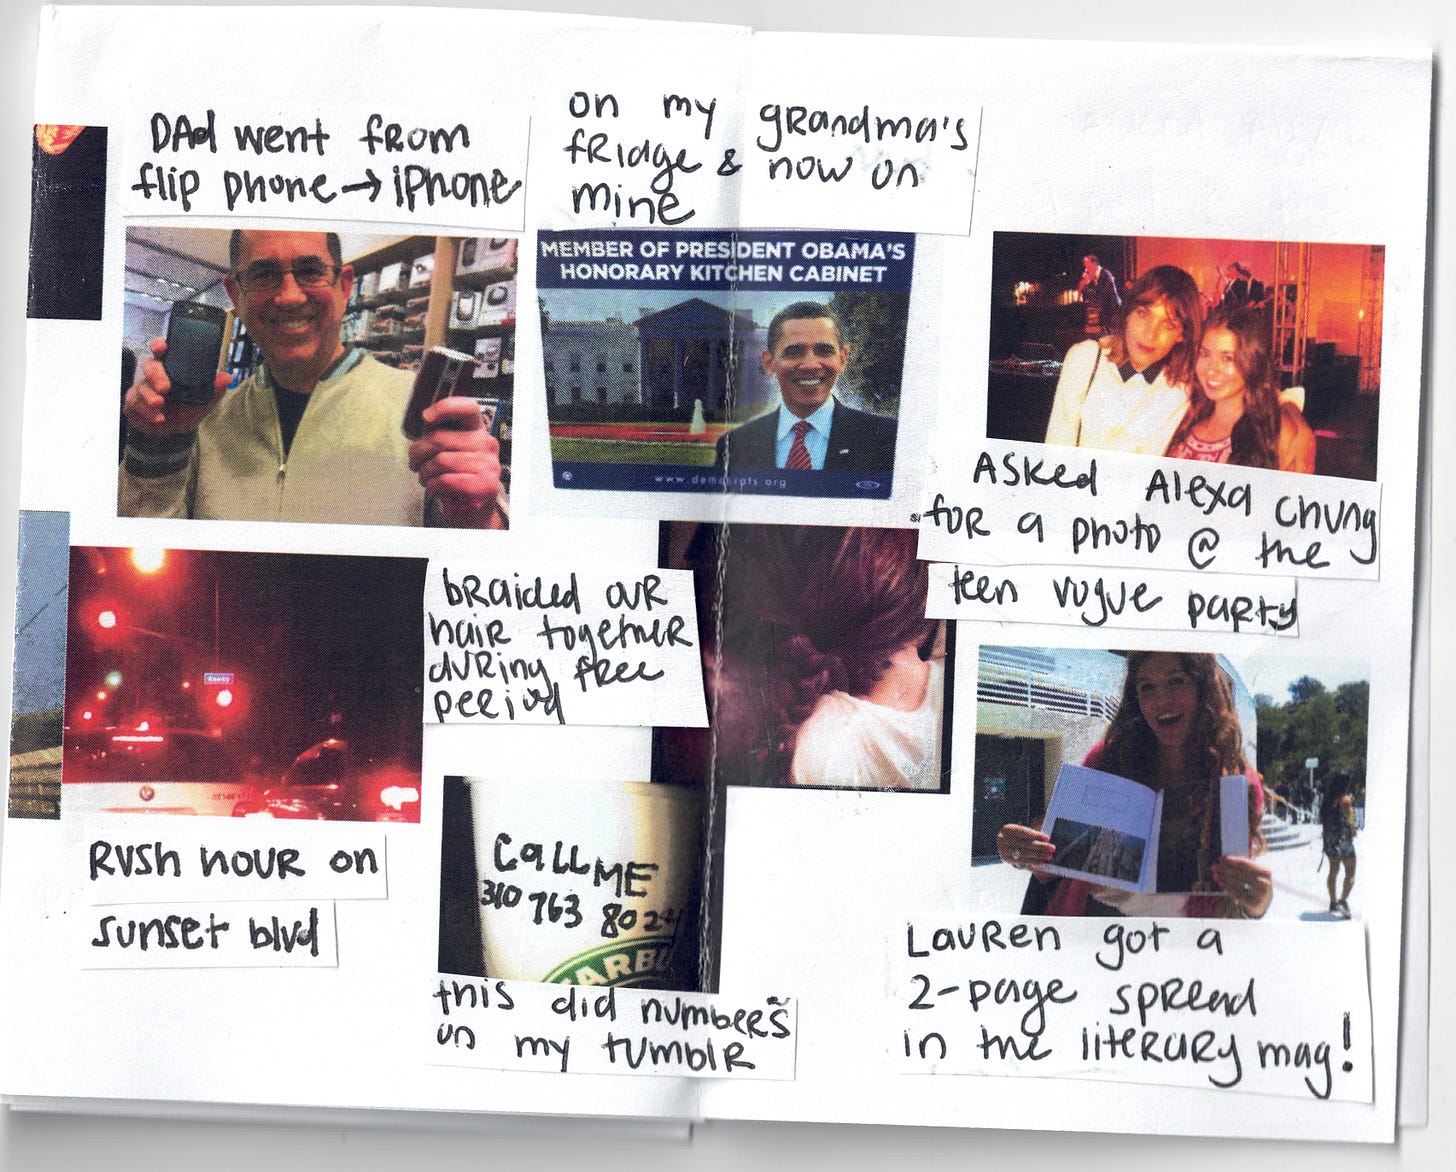 DAd went from
flip phone → iPhone
on my grandma's
fridge & now on
mine
MEMBER OF PRESIDENT OBAMA'S
HONORARY KITCHEN CABINET
www.democrats.org
Asked Alexa Chung
for a photo @ the
teen vogue party
braided our
hair together
during free
period
Rush hour on
sunset blvd
CALL ME
310 763 802
ARBU
this did numbers
on my tumblr
Lauren got a
2-page spread
in the literary mag!